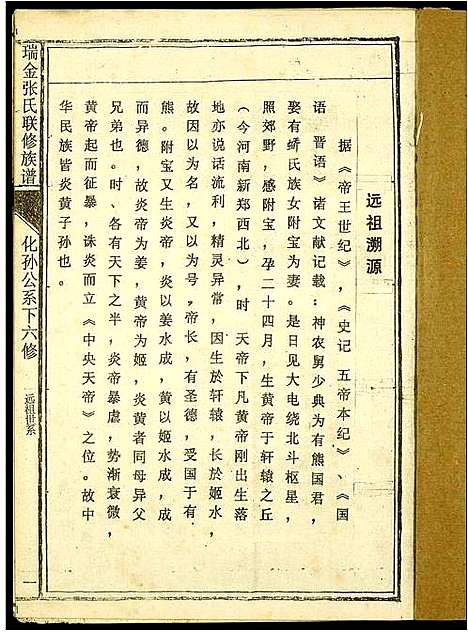 远祖溯源
据《帝王世纪》，《史记 五帝本纪》、《国
语 晋语》诸文献记载：神农舅少典为有熊国君，
娶有蟜氏族女附宝为妻。是日见大电绕北斗枢星，
照郊野，感附宝，孕二十四月，生黄帝于轩辕之丘
（今河南新郑西北），时 天帝下凡黄帝刚出生落
地亦说话流利，精灵异常，因生於轩辕，长於姬水，
故因以为名，又以为号，帝长，有圣德，受国于有
熊。附宝又生炎帝，炎以姜水成，黄以姬水成，成
而异德，故炎帝为姜，黄帝为姬，炎黄者同母异父
兄弟也。时、各有天下之半，炎帝暴虐，势渐衰微，
黄帝起而征暴，诛炎而立《中央天帝》之位。故中
华民族皆炎黄子孙也。
瑞金张氏联修族谱
化孙公系下六修
远祖世系
一